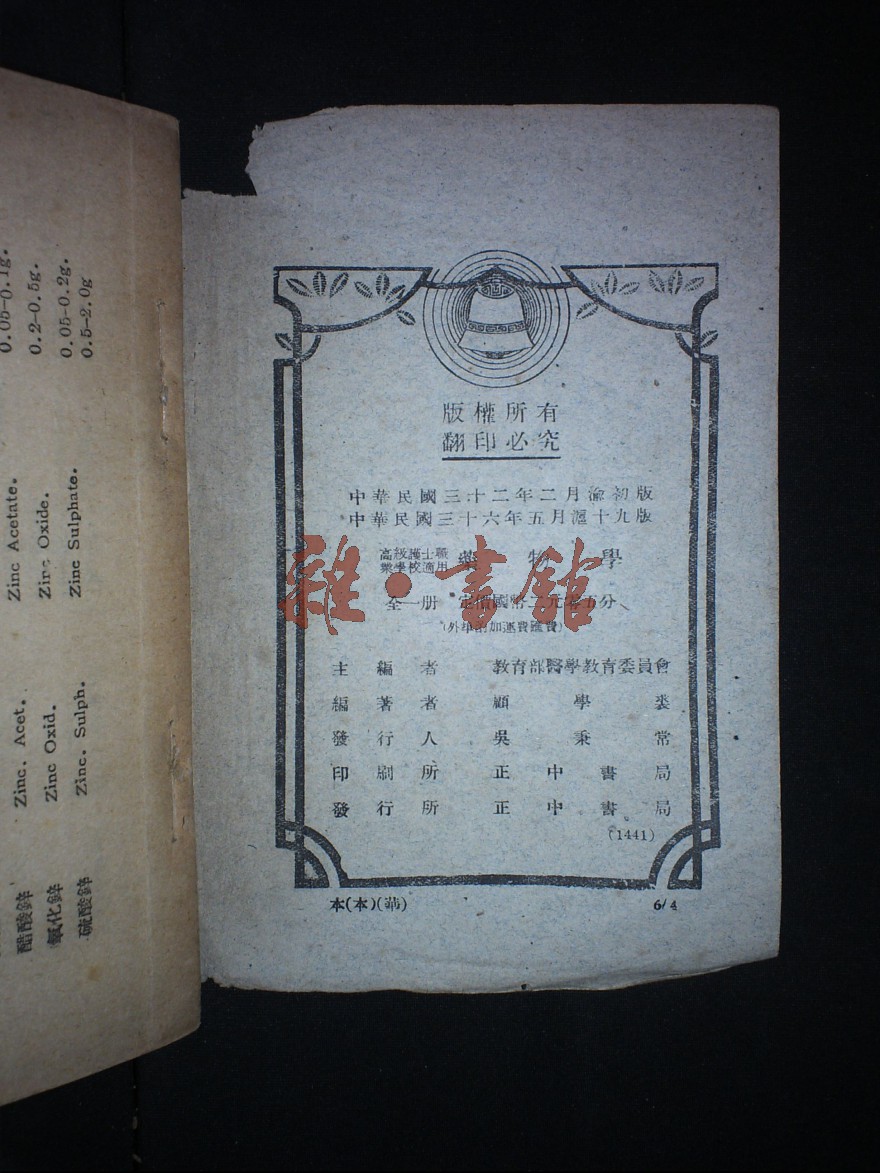 版權所有
翻印必究
中華民國三十二年二月渝初版
中華民國三十六年五月滬十九版
高級護士職業學校適用 藥物學
全一册 定價國幣二元 五分
(外埠酌加運費匯費)
主編者 教育部醫學教育委員會
編著者 顧學裘
發行人 吳秉常
印刷所 正中書局
發行所 正中書局
(1441)
本(本)(華) 6/4
雜·書館
0.05-0.1g.
Zinc Acetate. 0.2-0.5g.
醋酸鋅 Zinc. Acet. Zinc Oxide. 0.05-0.2g.
氧化鋅 Zinc Oxid. Zinc Sulphate. 0.5-2.0g
硫酸鋅 Zinc. Sulph.